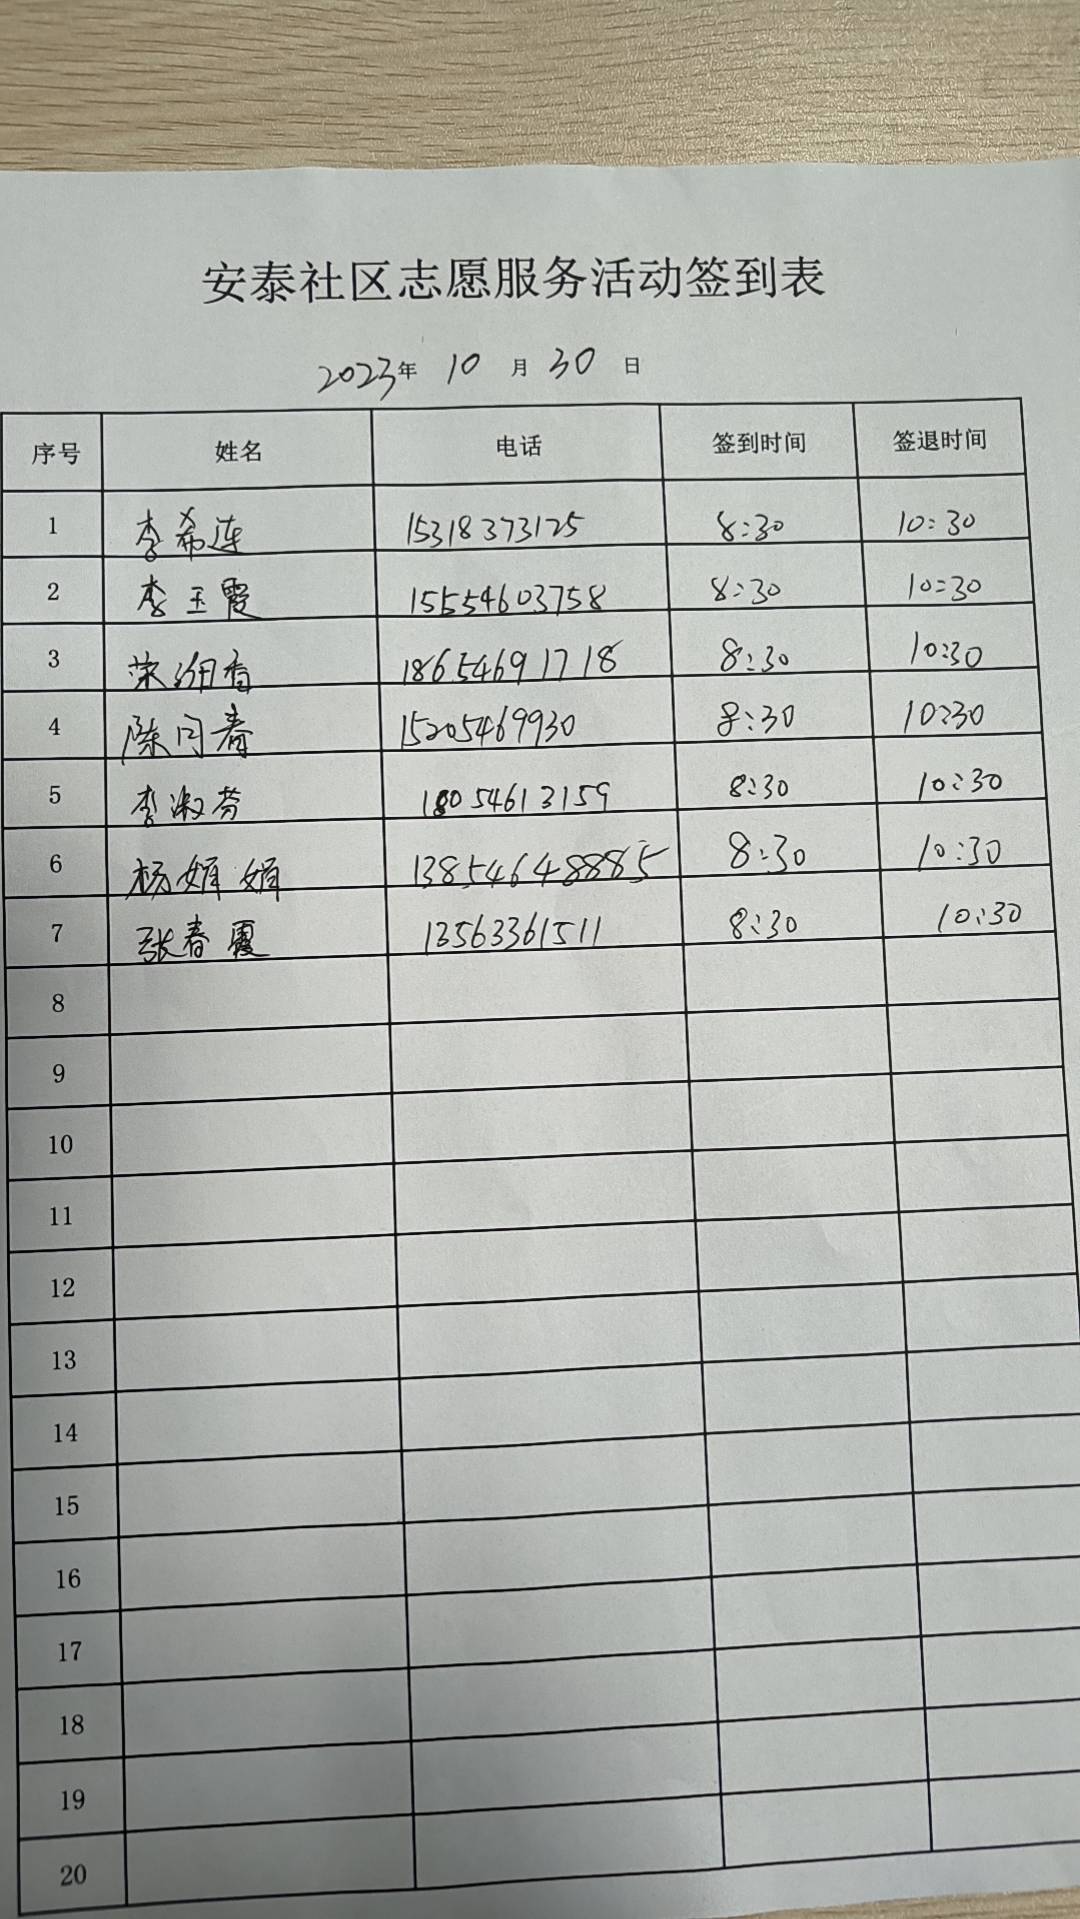 安泰社区志愿服务活动签到表
2023年 10 月 30 日
序号 姓名 电话 签到时间 签退时间
1 李希连 15318373125 8:30 10:30
2 李玉霞 15554603758 8:30 10:30
3 香 18654691718 8:30 10:30
4 陈同春 15205469930 8:30 10:30
5 李淑芬 18054613159 8:30 10:30
6 杨娟娟 13854648885 8:30 10:30
7 张春霞 13563361511 8:30 10:30
8
9
10
11
12
13
14
15
16
17
18
19
20